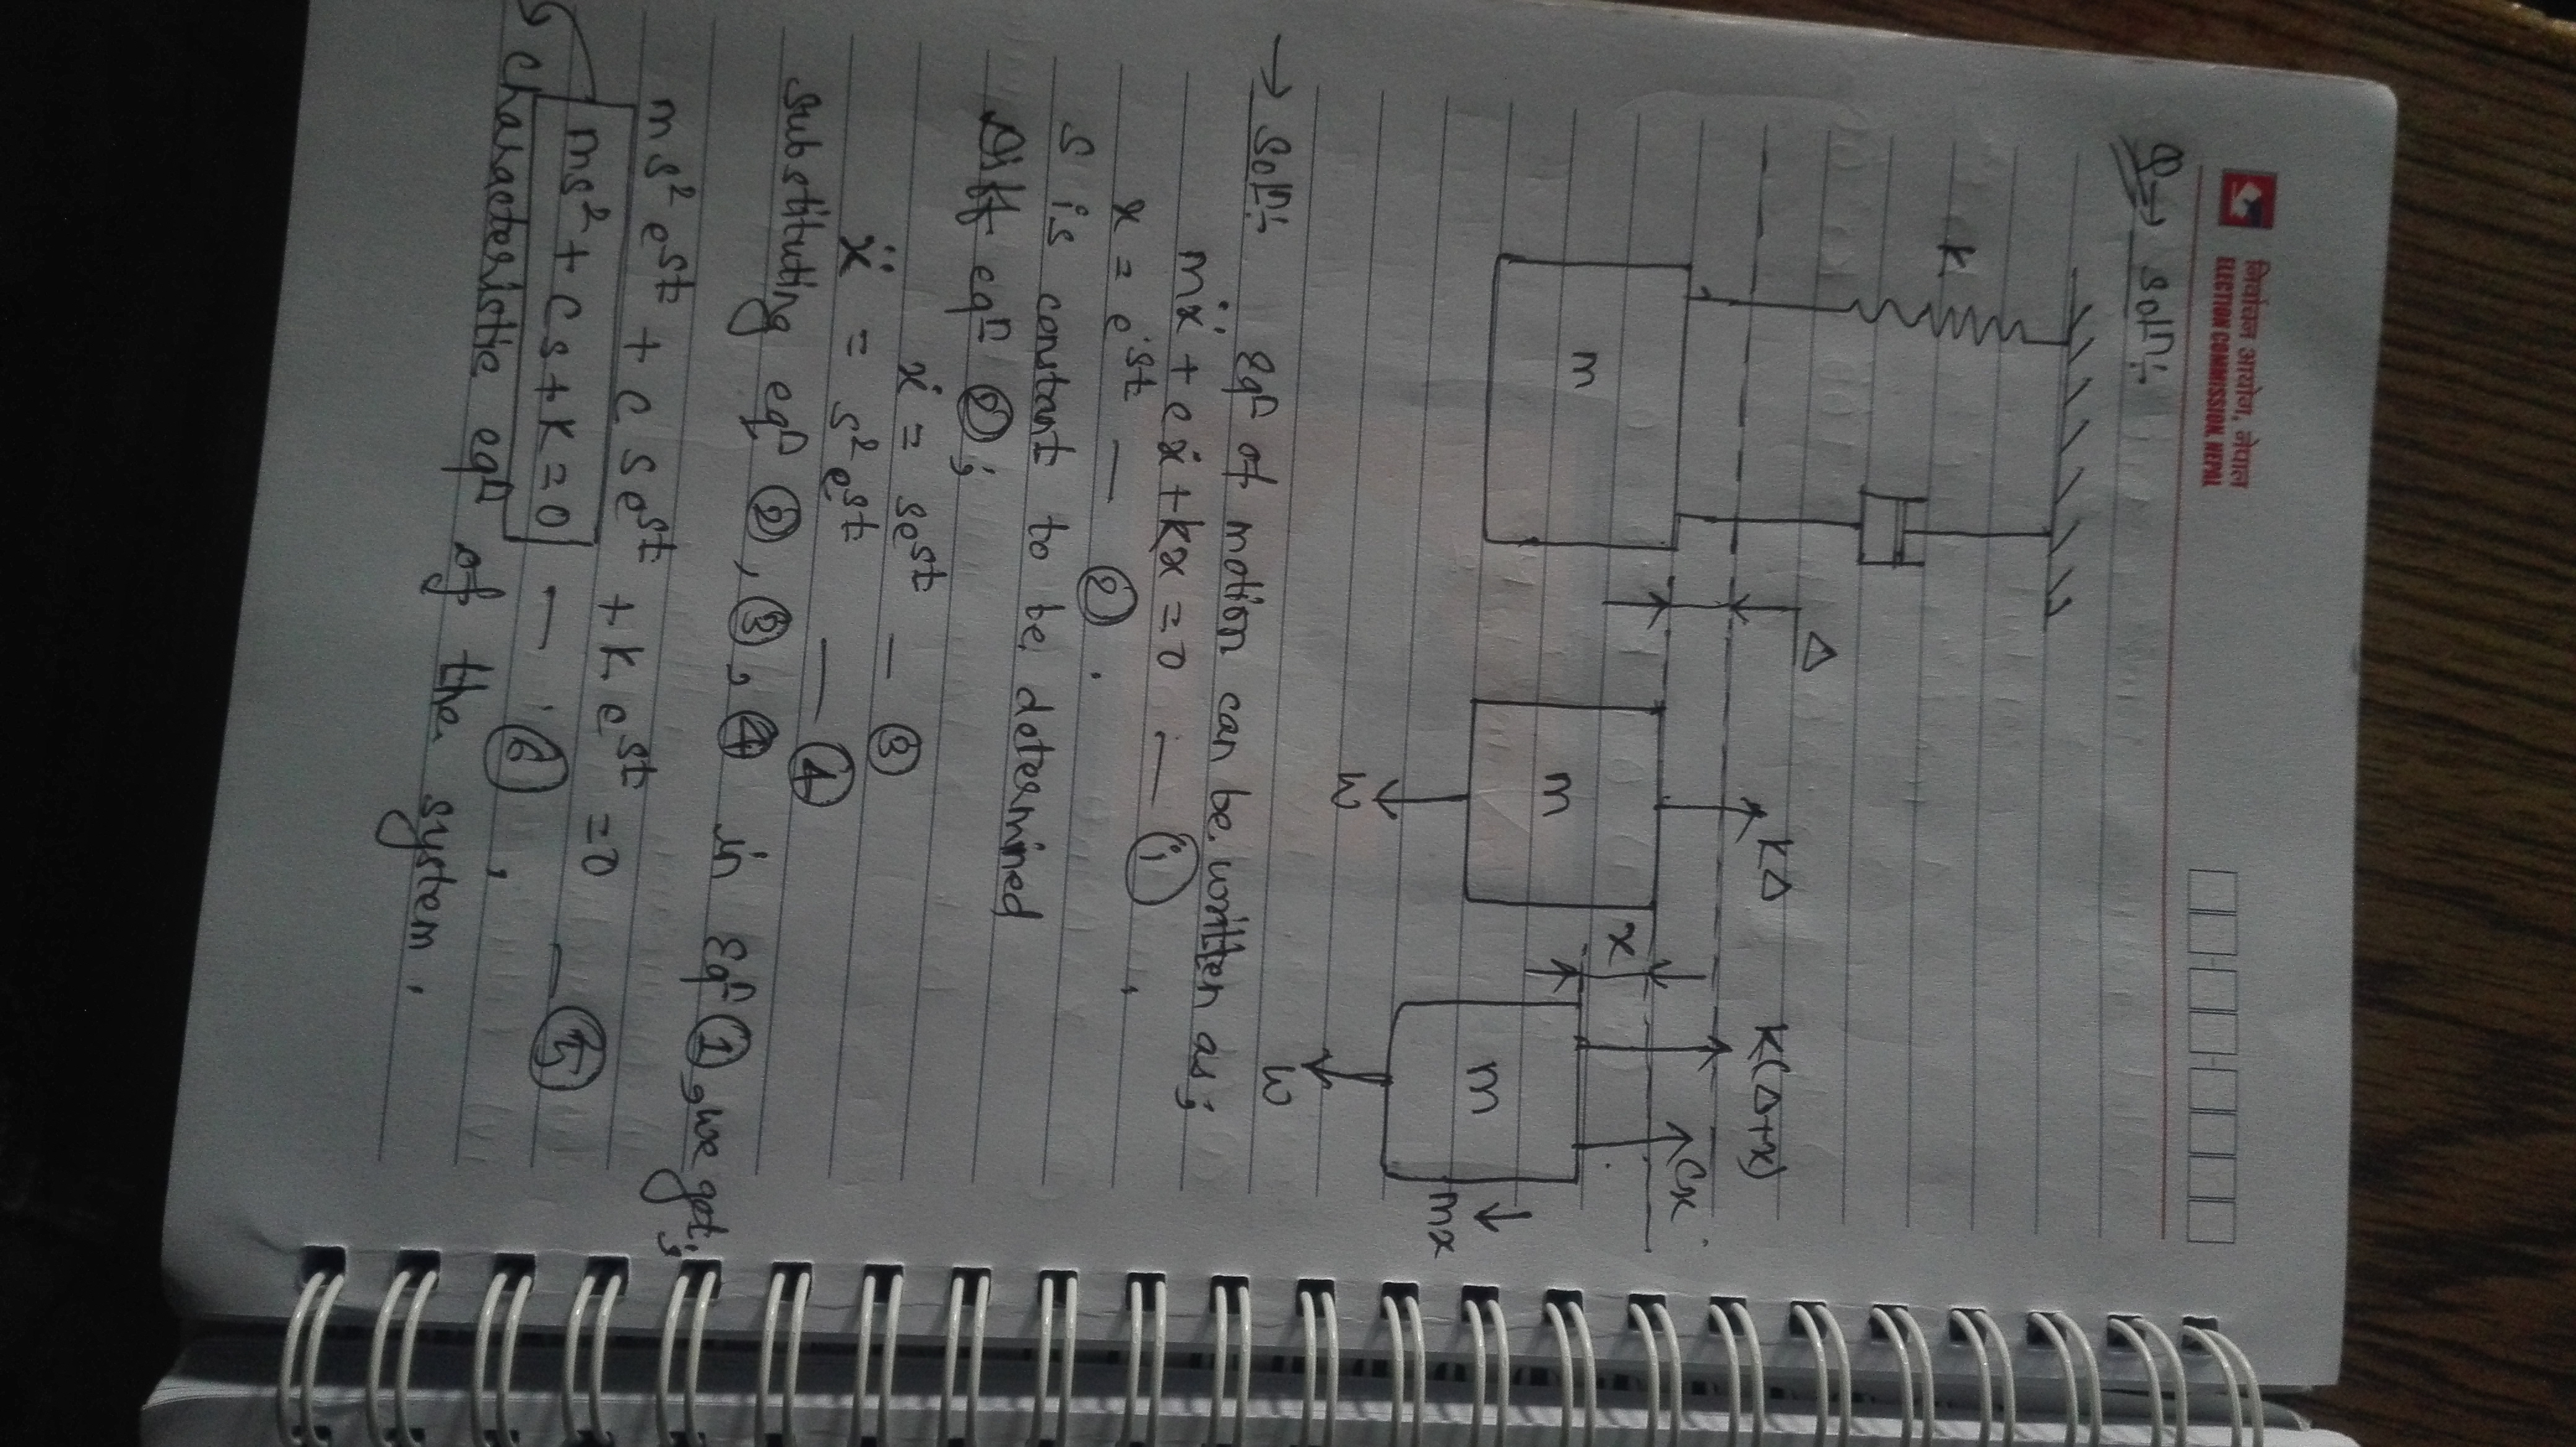 निर्वाचन आयोग, नेपाल
ELECTION COMMISSION, NEPAL
Q→ Solⁿ:-
K
Δ
KΔ
K(Δ+x)
cẋ
x
m
m
m
mẍ
W
W
→ Solⁿ:- Eqⁿ of motion can be written as;
mẍ + cẋ + kx = 0 — (i)
x = e^st — (2)
S is constant to be determined
Diff eqⁿ (2);
ẋ = se^st — (3)
ẍ = s²e^st — (4)
substituting eqⁿ (2), (3), (4) in Eqⁿ (1), we get;
ms²e^st + cse^st + ke^st = 0 — (5)
ms² + cs + k = 0 — (6)
↳ characteristic eqⁿ of the system.